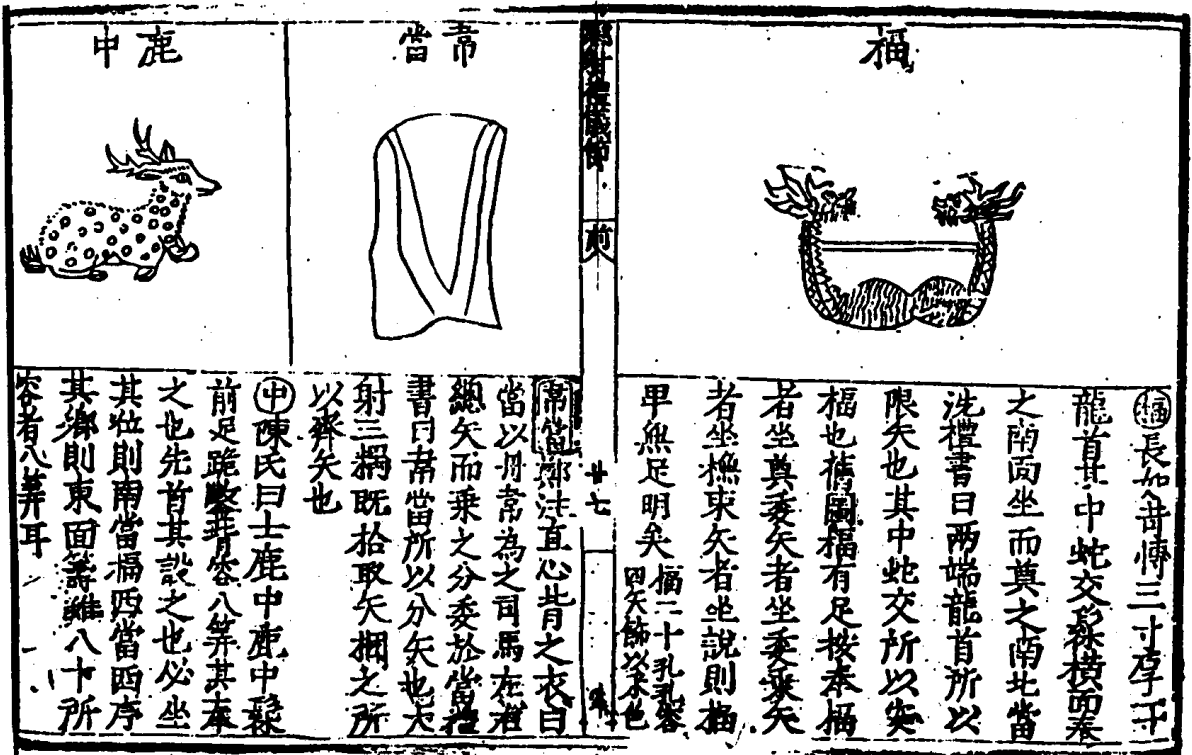 楅
楅長如笴博三寸厚寸
龍首其中蛇交髹橫而奉
之南面坐而奠之南北當
洗禮書曰两端龍首所以
限矢也其中蛇交所以安
楅也舊圖楅有足按本楅
者坐奠委矢者坐委乗矢
者坐撫束矢者坐說則楅
甲無足明矣
楅二十孔孔容
四矢飾以朱色
鄉射禮儀節
前
廿七
韋當
韋當鄭注直心背之衣曰
當以丹韋為之司馬左右
總矢而乗之分委於當禮
書曰韋當所以分矢也大
射三捆既拾取矢捆之所
以齊矢也
鹿中
中陳氏曰士鹿中鹿中髹
前足跪鑿背容八筭其奉
之也先首其設之也必坐
其位則南當楅西當西序
其鄉則東面籌雖八十所
容者八筭耳